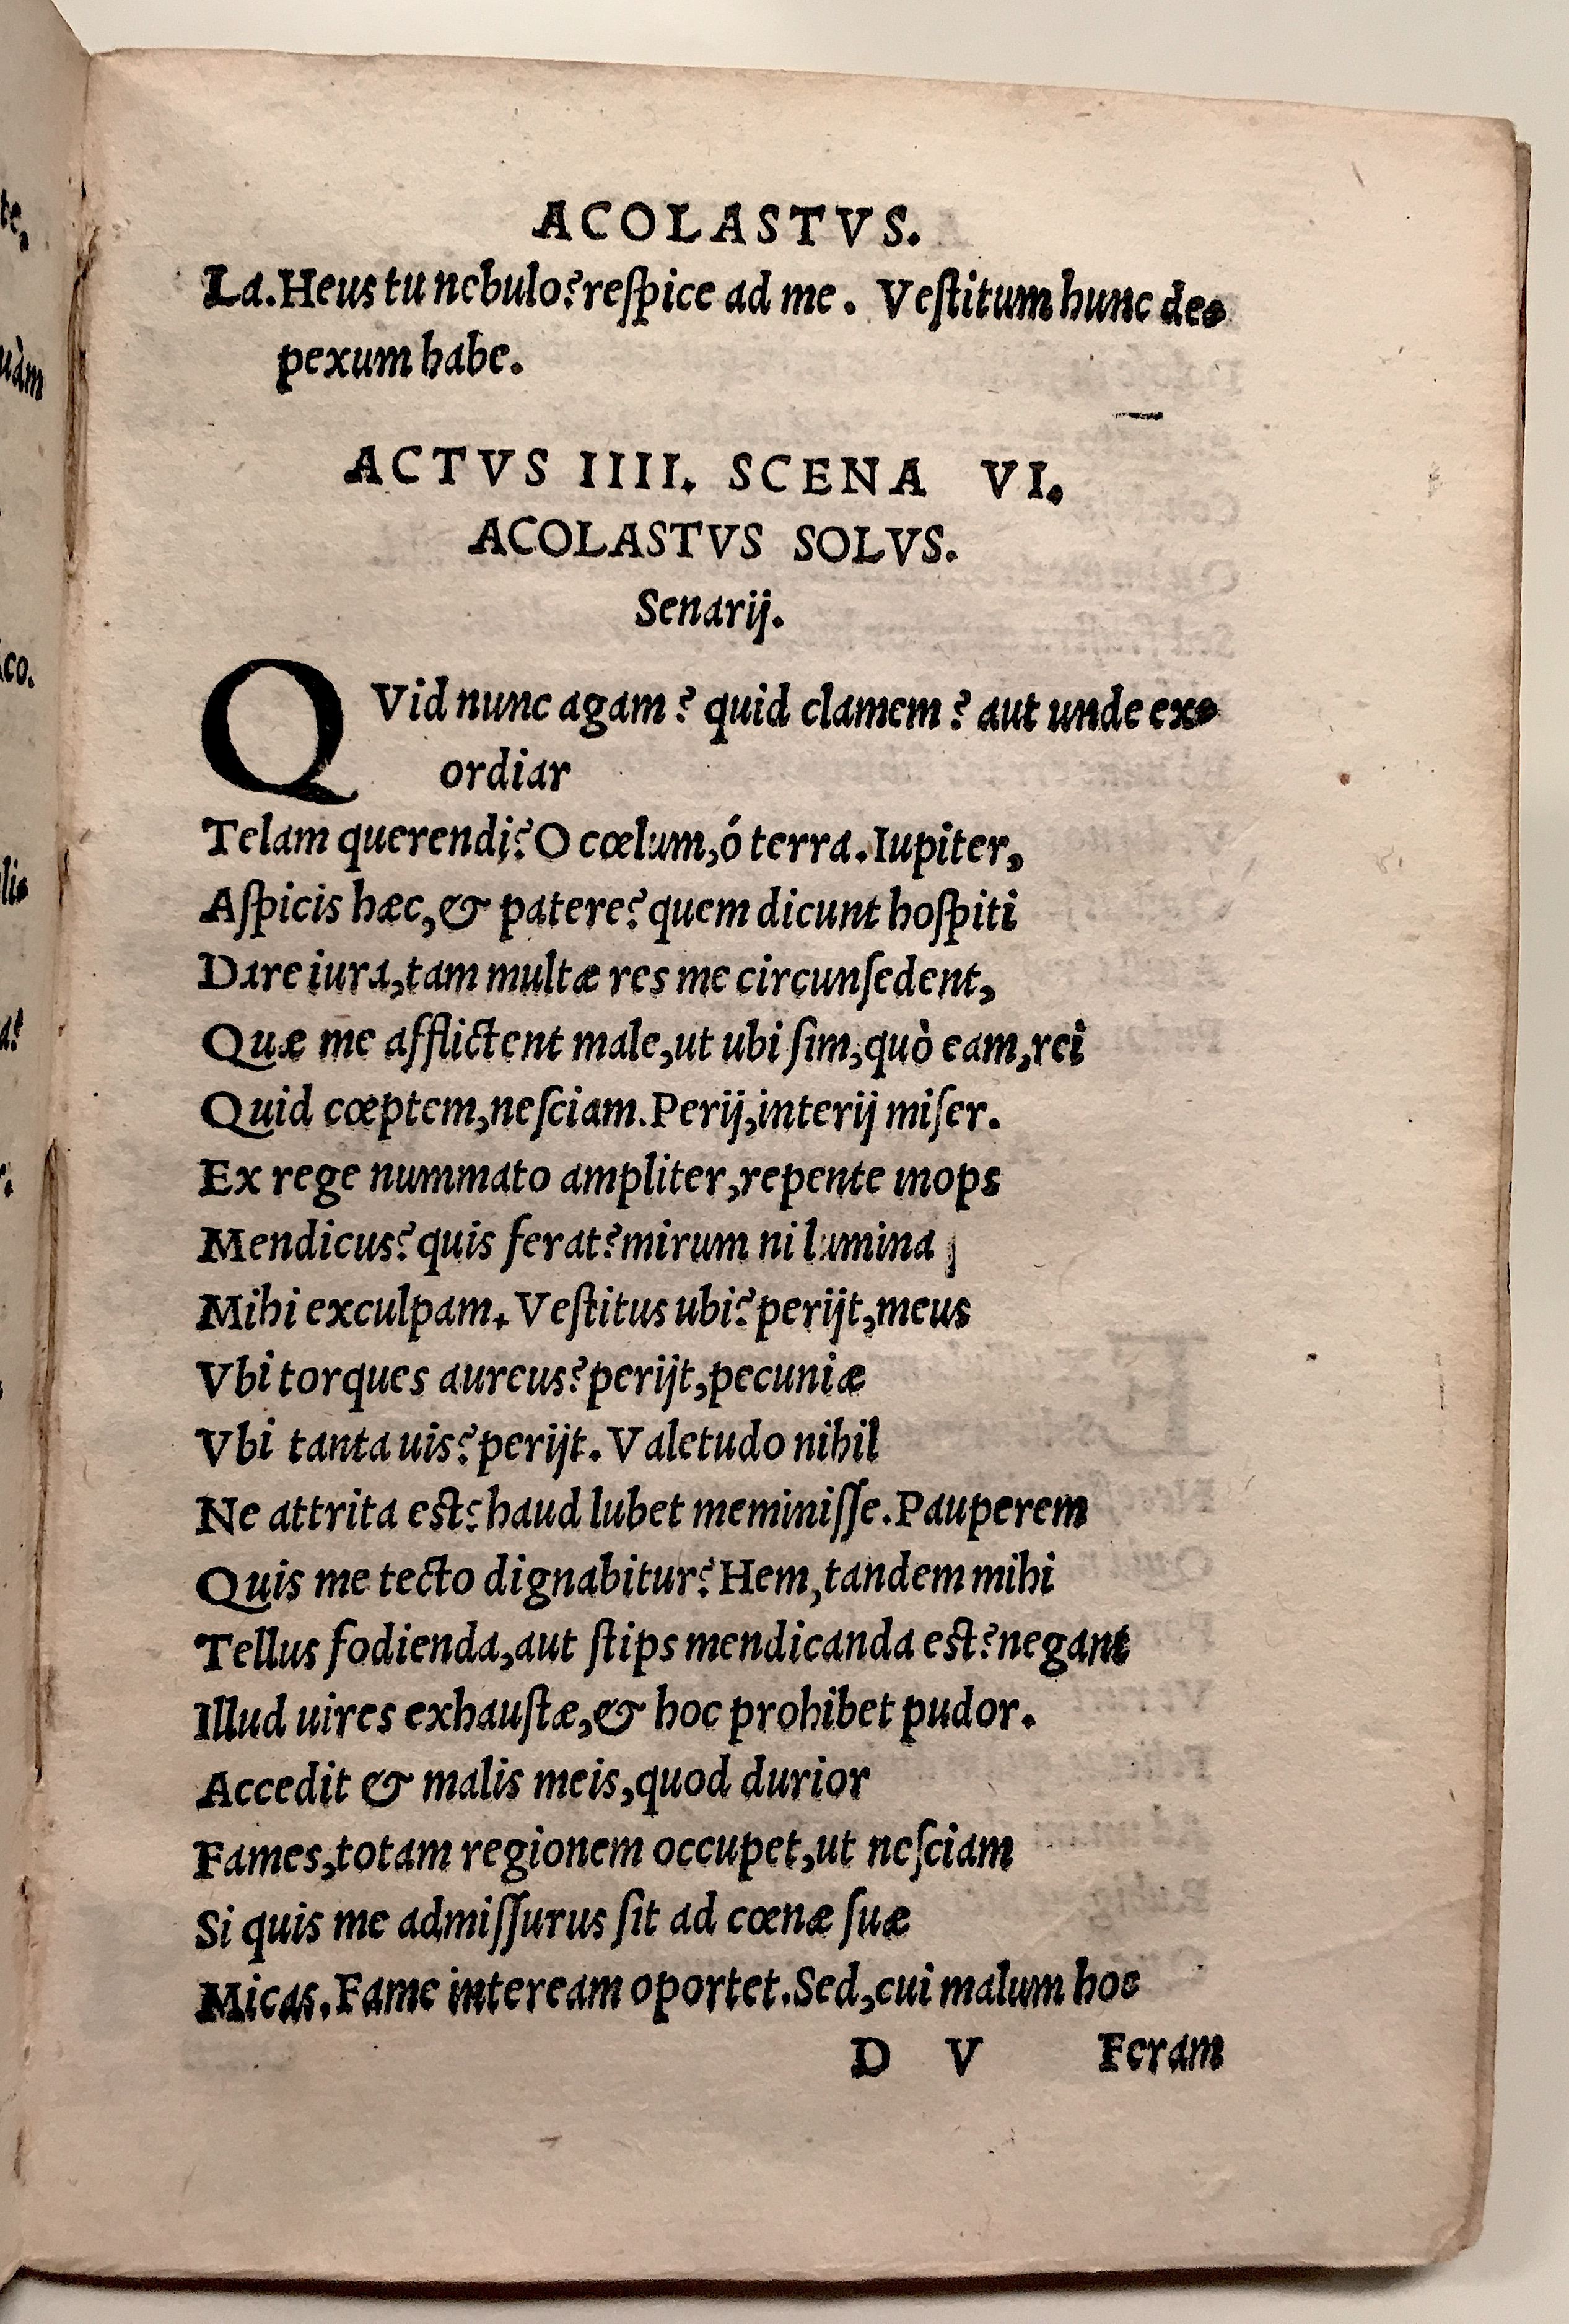 ACOLASTVS.
La. Heus tu nebulo? reſpice ad me. Veſtitum hunc de-
pexum habe.
ACTVS IIII. SCENA VI.
ACOLASTVS SOLVS.
Senarij.
QVid nunc agam? quid clamem? aut unde ex-
ordiar
Telam querendi? O cœlum, ó terra. Iupiter,
Aſpicis hæc, & patere? quem dicunt hoſpiti
Dare iura, tam multæ res me circunſedent,
Quæ me afflictent male, ut ubi ſim, quò eam, rei
Quid cœptem, neſciam. Perij, interij miſer.
Ex rege nummato ampliter, repente inops
Mendicus? quis ferat? mirum ni lumina
Mihi exculpam. Veſtitus ubi? perijt, meus
Vbi torques aureus? perijt, pecuniæ
Vbi tanta uis? perijt. Valetudo nihil
Ne attrita eſt? haud lubet meminiſſe. Pauperem
Quis me tecto dignabitur? Hem, tandem mihi
Tellus fodienda, aut ſtips mendicanda eſt? negant
Illud uires exhauſtæ, & hoc prohibet pudor.
Accedit & malis meis, quod durior
Fames, totam regionem occupet, ut neſciam
Si quis me admiſſurus ſit ad cœnæ ſuæ
Micas. Fame inteream oportet. Sed, cui malum hoc
D V Feram
te.
uàm
co.